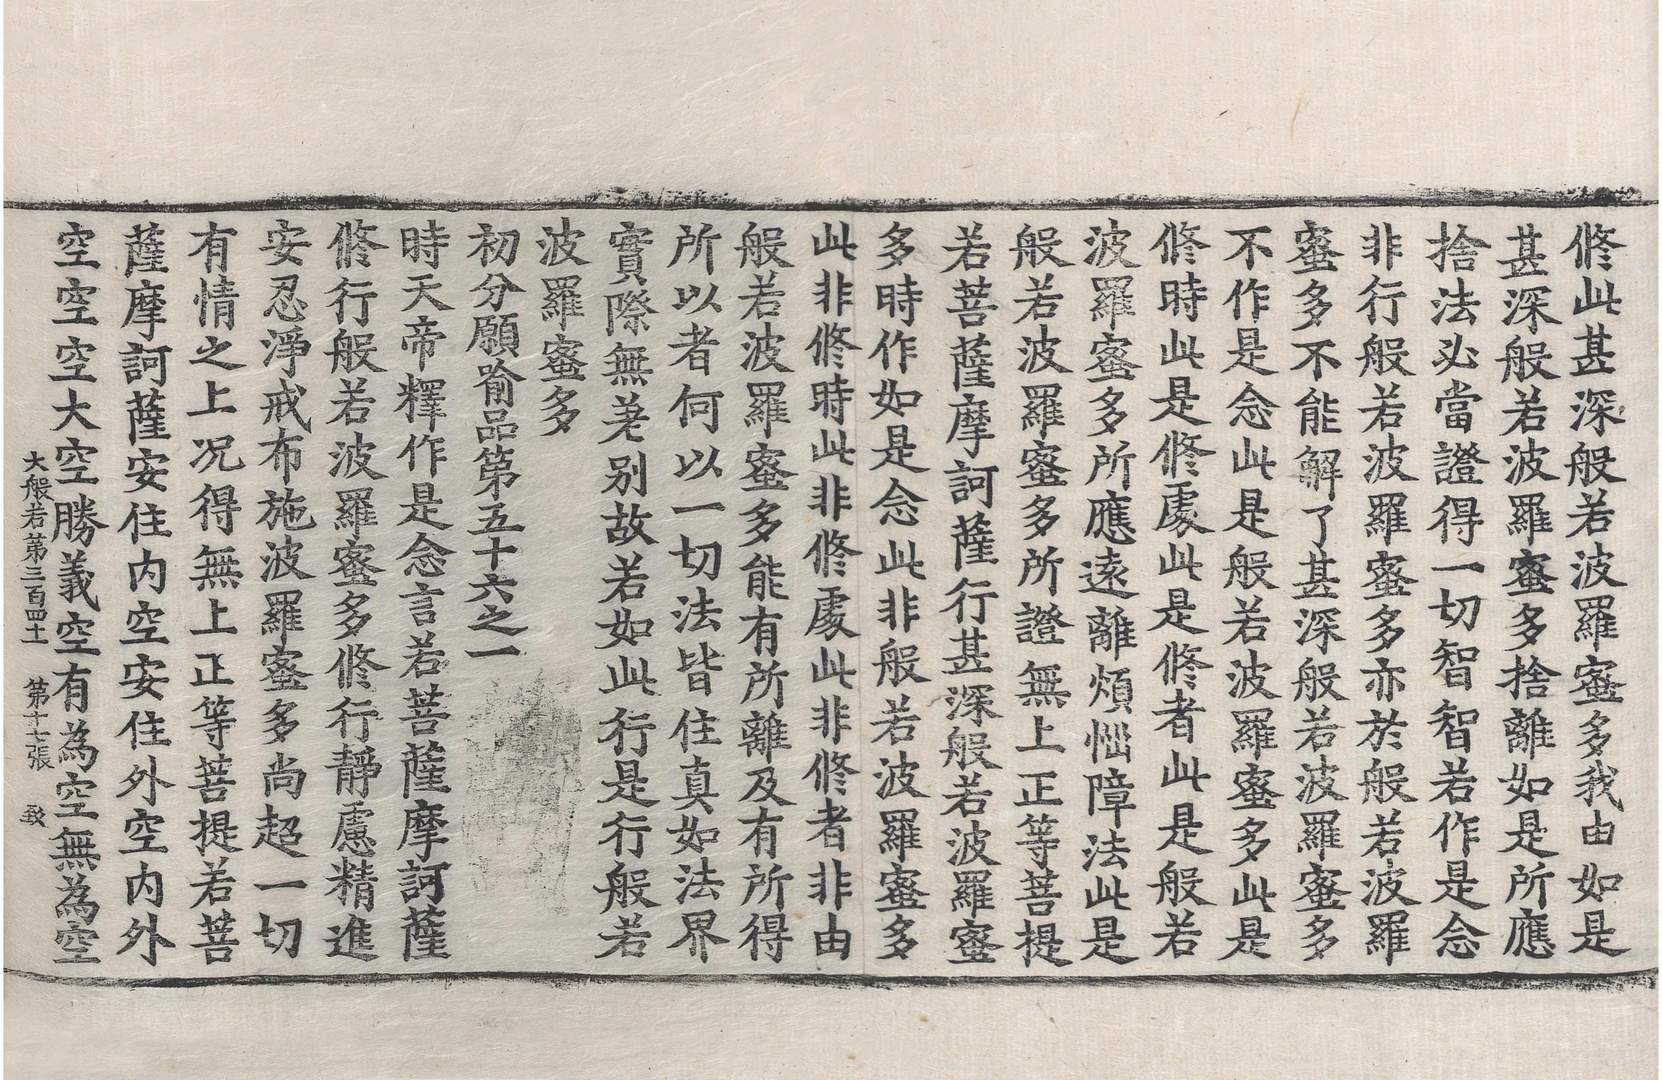 修此甚深般若波羅蜜多我由如是
甚深般若波羅蜜多捨離如是所應
捨法必當證得一切智智若作是念
非行般若波羅蜜多亦於般若波羅
蜜多不能解了甚深般若波羅蜜多
不作是念此是般若波羅蜜多此是
修時此是修處此是修者此是般若
波羅蜜多所應遠離煩惱障法此是
般若波羅蜜多所證無上正等菩提
若菩薩摩訶薩行甚深般若波羅蜜
多時作如是念此非般若波羅蜜多
此非修時此非修處此非修者非由
般若波羅蜜多能有所離及有所得
所以者何以一切法皆住真如法界
實際無差别故若如此行是行般若
波羅蜜多
初分願喻品第五十六之一
時天帝釋作是念言若菩薩摩訶薩
修行般若波羅蜜多修行靜慮精進
安忍淨戒布施波羅蜜多尚超一切
有情之上况得無上正等菩提若菩
薩摩訶薩安住内空安住外空内外
空空空大空勝義空有為空無為空
大般若第三百四十 第十七張 致